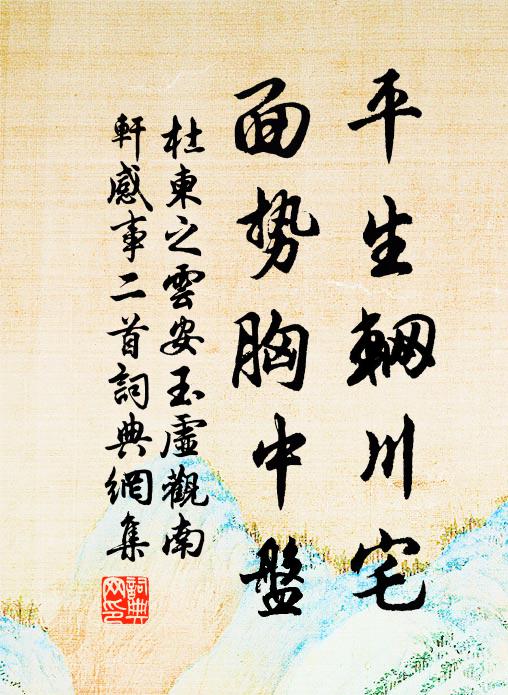 平生輞川宅
面势胸中盤
杜東之雲安玉虛觀南
軒感事二首詞典網集
詞典
网印